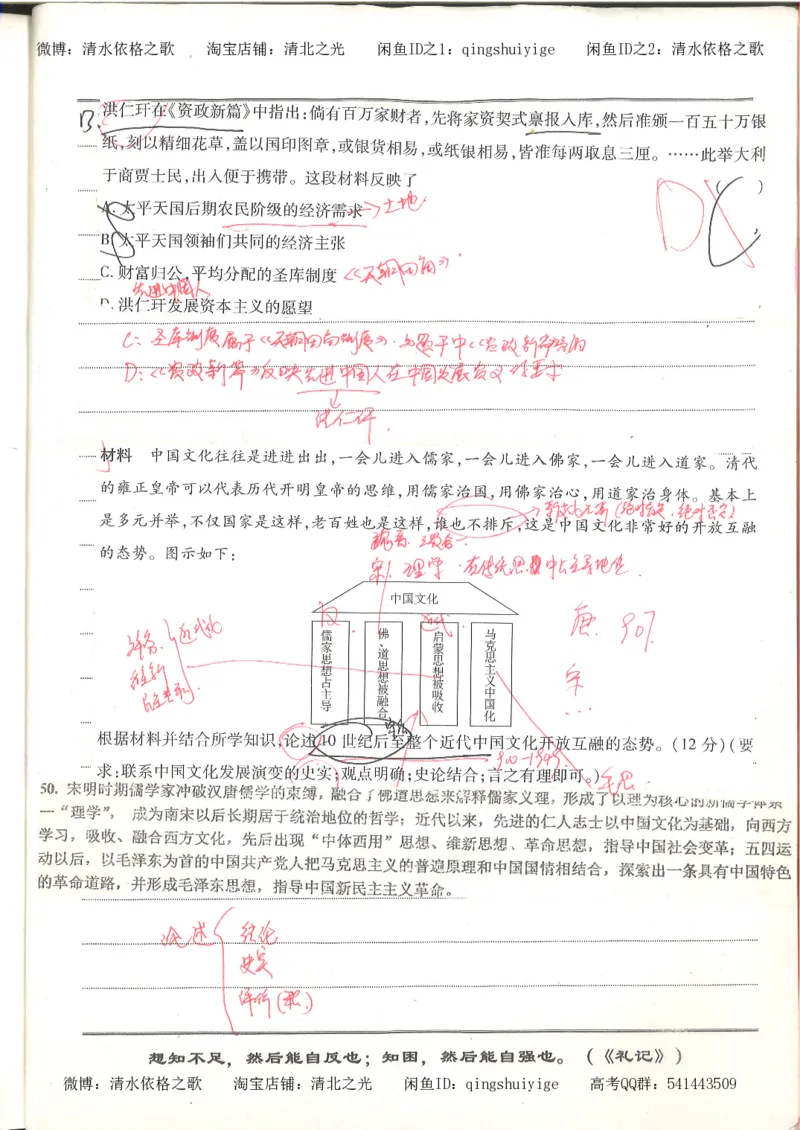 微博：清水依格之歌 淘宝店铺：清北之光 闲鱼ID之1：qingshuiyige 闲鱼ID之2：清水依格之歌
B 洪仁玕在《资政新篇》中指出：倘有百万家财者，先将家资契式禀报入库，然后准颁一百五十万银
纸，刻以精细花草，盖以国印图章，或银货相易，或纸银相易，皆准每两取息三厘。……此举大利
于商贾士民，出入便于携带。这段材料反映了 （ ）
D C
A. 太平天国后期农民阶级的经济需求 →土地
B. 太平天国领袖们共同的经济主张
C. 财富归公，平均分配的圣库制度 《天朝田亩》
先进中国人
D. 洪仁玕发展资本主义的愿望
C：圣库制度属于《天朝田亩制度》
D：《资政新篇》反映先进中国人在中国发展资义的要求
洪仁玕
材料 中国文化往往是进进出出，一会儿进入儒家，一会儿进入佛家，一会儿进入道家。清代
的雍正皇帝可以代表历代开明皇帝的思维，用儒家治国，用佛家治心，用道家治身体。基本上
是多元并举，不仅国家是这样，老百姓也是这样，谁也不排斥，这是中国文化非常好的开放互融
的态势。图示如下：
宋：理学
中国文化
唐 907
儒家思想占主导
佛、道思想被融合
启蒙思想被吸收
马克思主义中国化
近代化
宋
…
根据材料并结合所学知识，论述10世纪后至整个近代中国文化开放互融的态势。（12分）（要
900-1949
求：联系中国文化发展演变的史实；观点明确；史论结合；言之有理即可。）
50. 宋明时期儒学家冲破汉唐儒学的束缚，融合了佛道思想来解释儒家义理，形成了以理为核心的新儒学体系
—“理学”， 成为南宋以后长期居于统治地位的哲学；近代以来，先进的仁人志士以中国文化为基础，向西方
学习，吸收、融合西方文化，先后出现“中体西用”思想、维新思想、革命思想，指导中国社会变革；五四运
动以后，以毛泽东为首的中国共产党人把马克思主义的普遍原理和中国国情相结合，探索出一条具有中国特色
的革命道路，并形成毛泽东思想，指导中国新民主主义革命。
论述
结论
史实
评价
想知不足，然后能自反也；知困，然后能自强也。（《礼记》）
微博：清水依格之歌 淘宝店铺：清北之光 闲鱼ID：qingshuiyige 高考QQ群：541443509